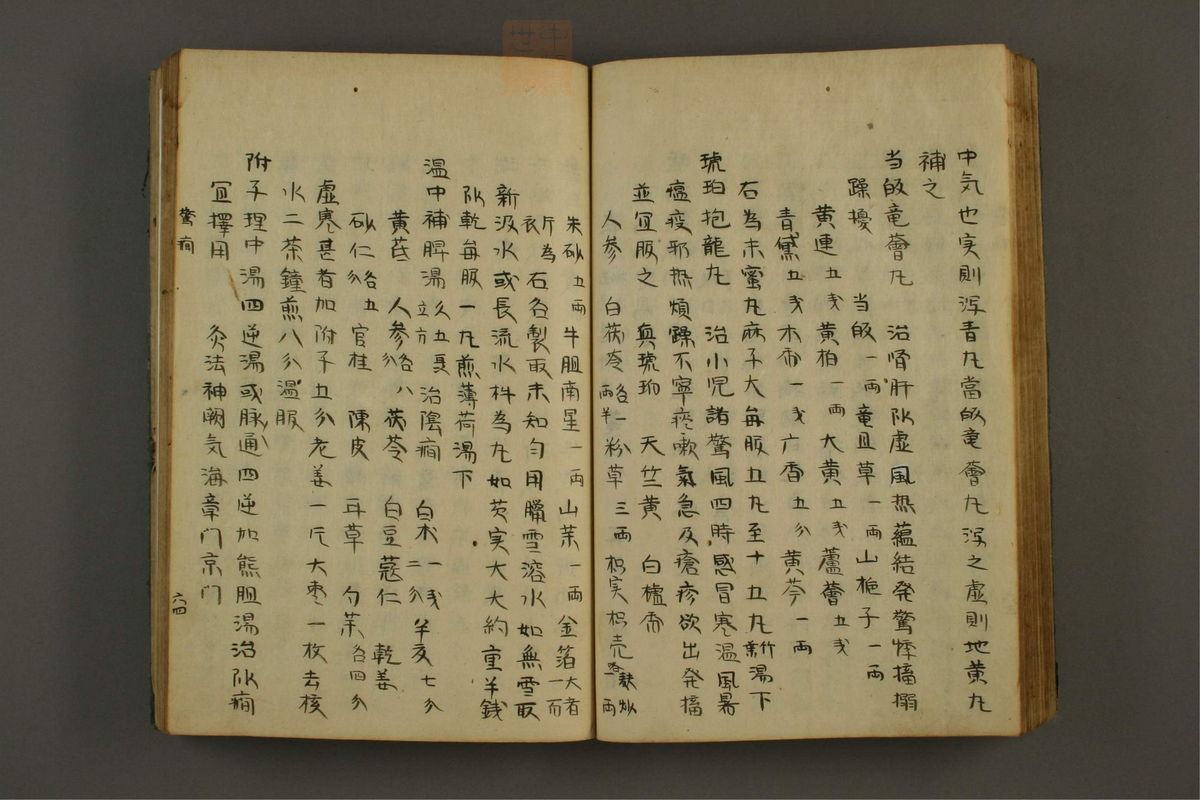 中気也実則泻青丸當皈竜薈丸泻之虚則地黄丸
補之
当皈竜薈丸　治腎肝阴虚風热蘊結発驚悸搐搦
躁擾　当皈一両竜胆草一両山梔子一両
黄連五戋黄柏一両大黄五戋蘆薈五戋
青黛五戋木香一戋六香五分黄芩一両
右為末蜜丸麻子大每服五丸至十五丸新竹湯下
琥珀抱龍丸　治小児諸驚風四時感冒寒温風暑
瘟疫邪热煩躁不寧痰嗽氣急及瘡疹欲出発搐
並冝服之　真琥珀　天竺黄　白檀香
人參　白茯苓各一両半粉草三両枳実枳壳各麸炒一両
朱砂五両牛胆南星一両山茱一両金箔大者一而
斤為衣　右各製取末知匀用臘雪溶水如無雪取
新汲水或長流水杵為丸如芡実大大約重半銭
阴乾每服一丸煎薄荷湯下
温中補脾湯　立方　治陰癎　白朮一戋二分半亥七分
黄茋　人參各八分　茯苓　白豆蔻仁　乾姜
砂仁各五分　官桂　陳皮　耳草　勺茱各四分
虚寒甚者加附子五分老姜一片大枣一枚去核
水二茶鐘煎八分温服
附子理中湯四逆湯或脉通四逆加熊胆湯治阴癎
冝擇用　灸法神闕気海章门京门
驚癎
六四